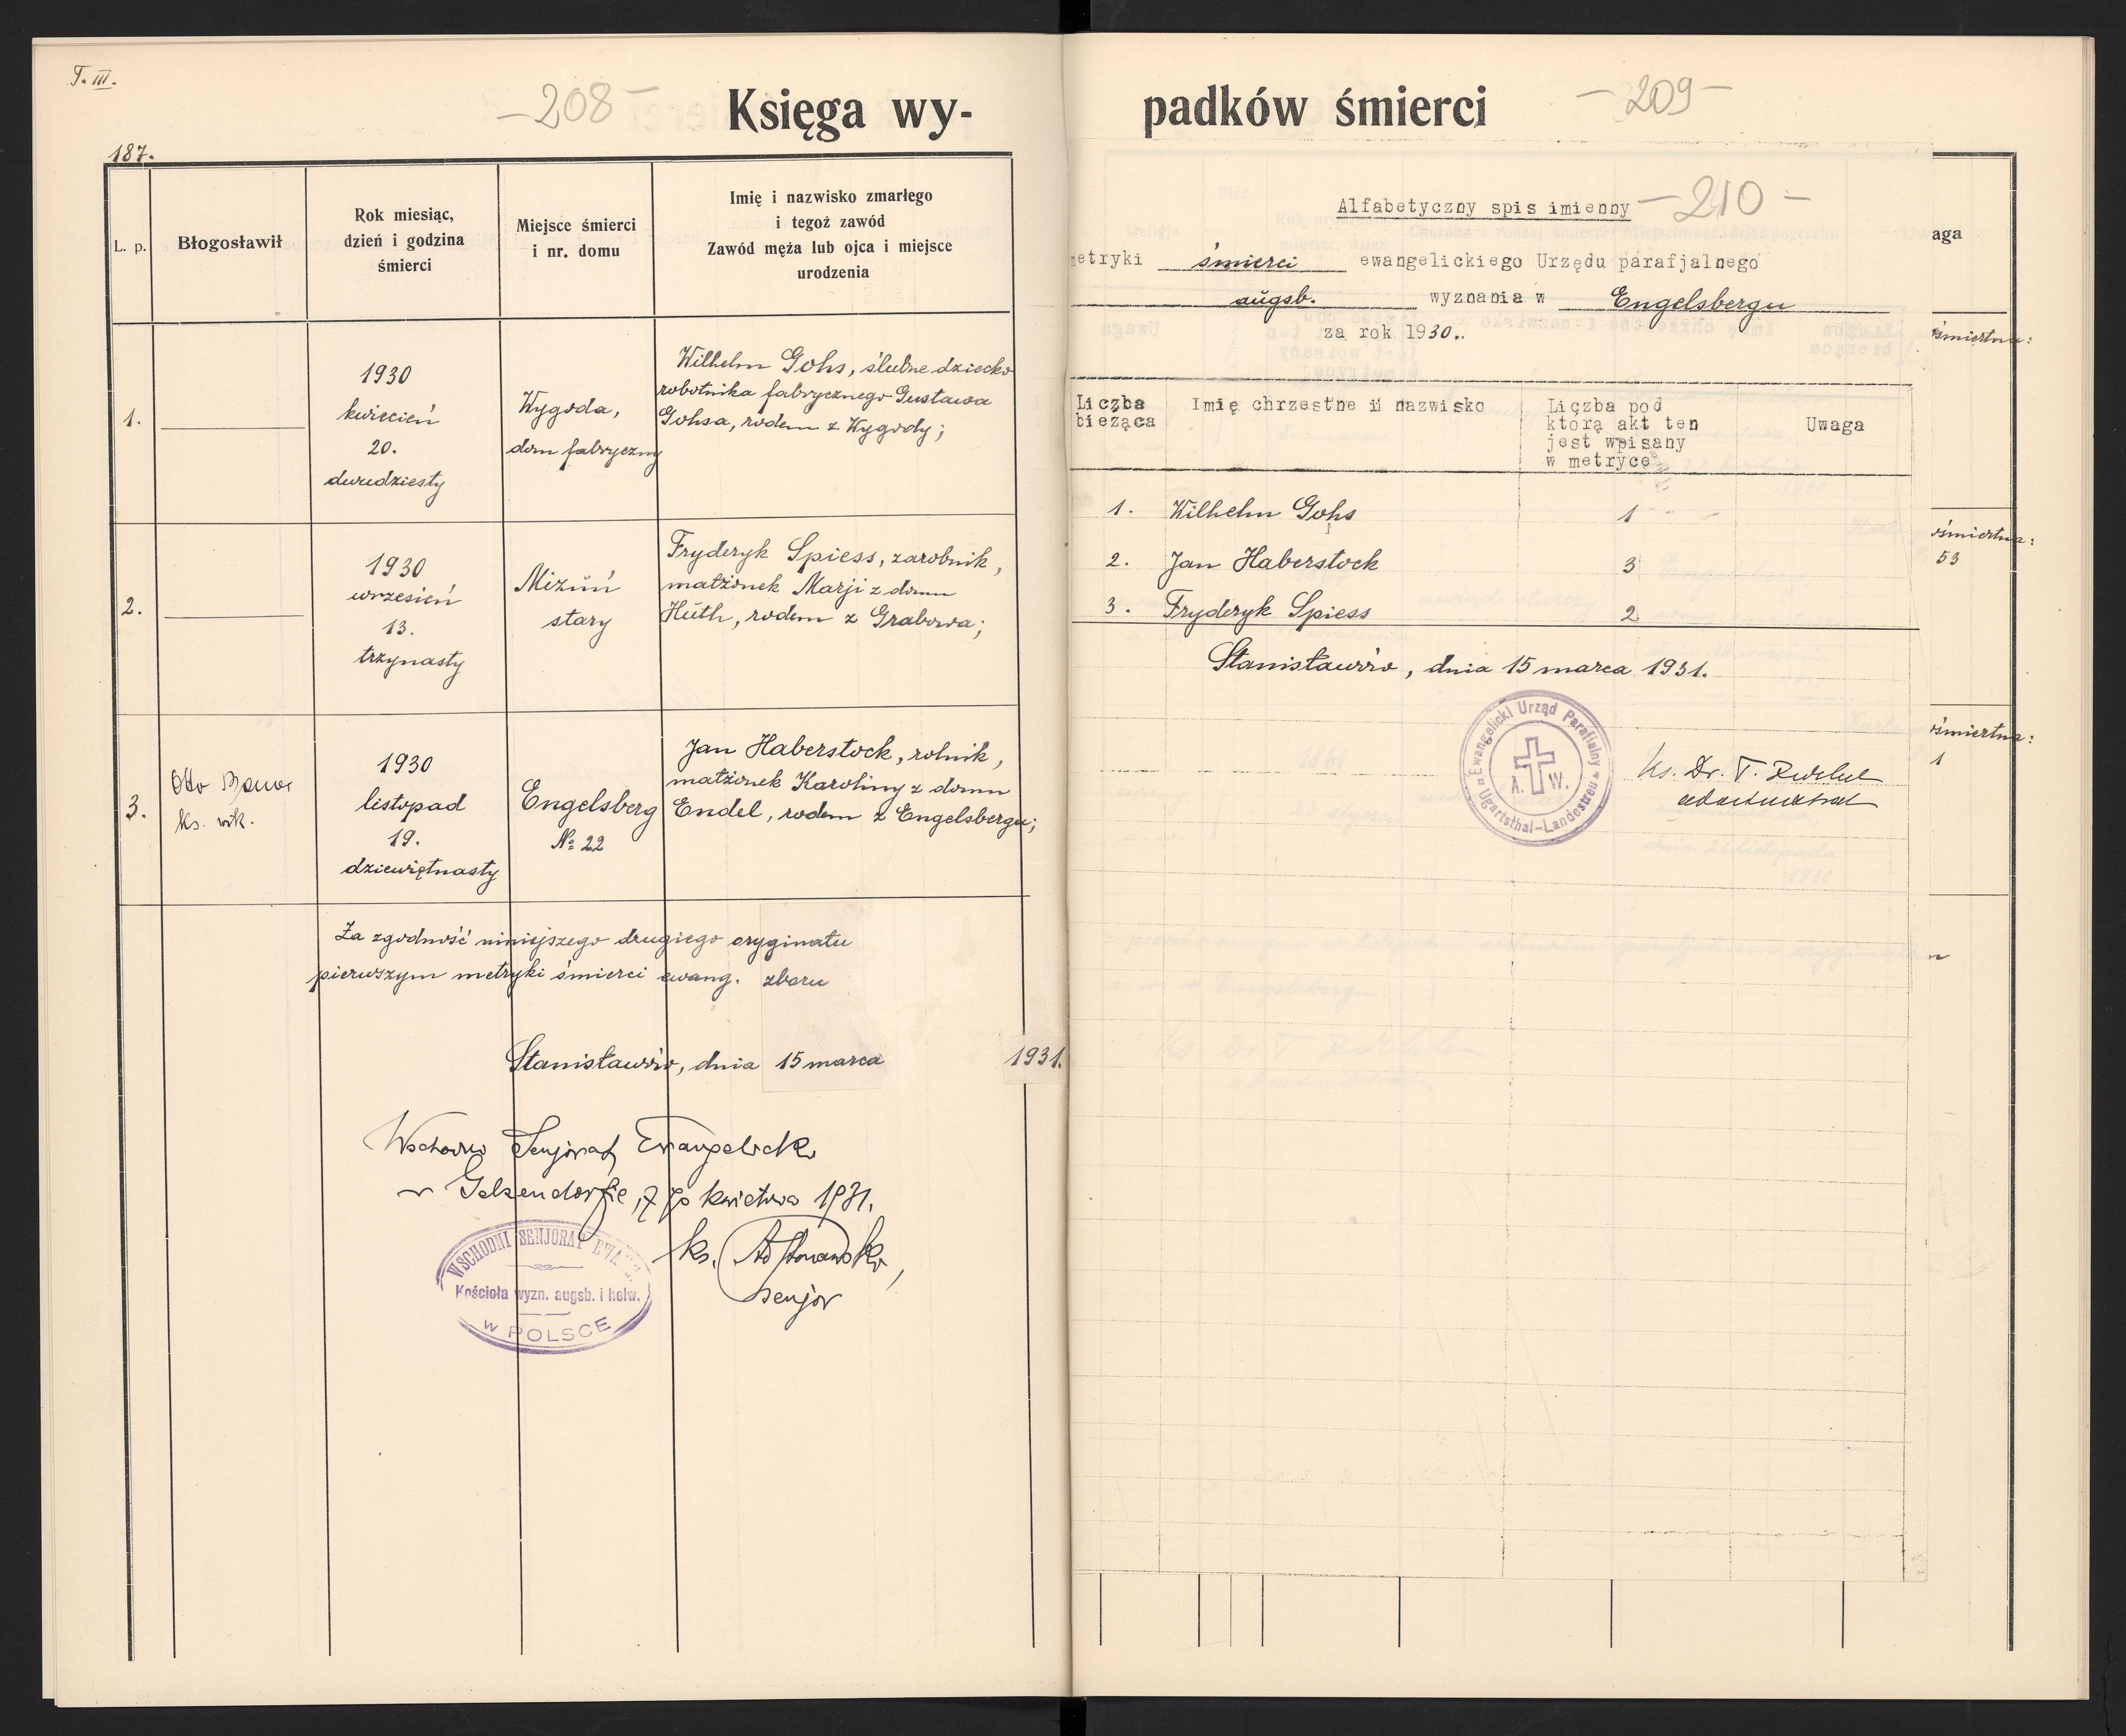 T. III.
-208-
Księga wy-
187.
L. p.
Błogosławił
Rok miesiąc,
dzień i godzina
śmierci
Miejsce śmierci
i nr. domu
Imię i nazwisko zmarłego
i tegoż zawód
Zawód męża lub ojca i miejsce
urodzenia
1.
1930
kwiecień
20.
dwudziesty
Wygoda,
dom fabryczny
Wilhelm Gohs, ślubne dziecko
robotnika fabrycznego Gustawa
Gohsa, rodem z Wygody;
2.
1930
wrzesień
13.
trzynasty
Mizuń
stary
Fryderyk Spiess, zarobnik,
małżonek Marji z domu
Huth, rodem z Grabowa;
3.
Otto Bauer
ks. wik.
1930
listopad
19.
dziewiętnasty
Engelsberg
№ 22
Jan Haberstock, rolnik,
małżonek Karoliny z domu
Endel, rodem z Engelsbergu;
Za zgodność niniejszego drugiego oryginału
pierwszym metryki śmierci ewang. zboru
Stanisławów, dnia 15 marca 1931.
Wschodni Senjorat Ewangelicki
w Gelsendorfie, 7 go kwietnia 1931.
ks.
senjor
WSCHODNI SENJORAT EWANG.
Kościoła wyzn. augsb. i helw.
w POLSCE
padków śmierci
-209-
Alfabetyczny spis imienny
-210-
etryki śmierci ewangelickiego Urzędu parafjalnego
augsb. wyznania w Engelsbergu
za rok 1930..
Liczba
bieżąca
Imię chrzestne i nazwisko
Liczba pod
którą akt ten
jest wpisany
w metryce
Uwaga
1. Wilhelm Gohs 1
2. Jan Haberstock 3
3. Fryderyk Spiess 2
Stanisławów, dnia 15 marca 1931.
Ewangelicki Urząd Parafialny
A. W.
Ugartsthal-Landestreu
ks. Dr. T. Zöckler
administrator
aga
śmiertna:
śmiertna:
53
śmiertna:
1